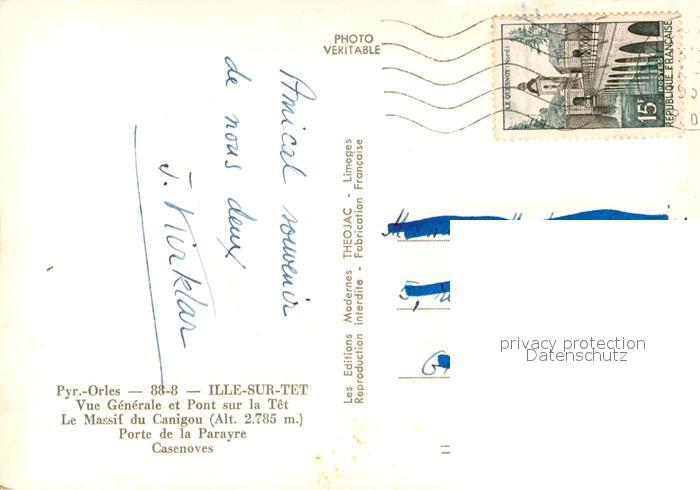 PHOTO
VERITABLE
LE QUESNOY (Nord)
15F
POSTES
REPUBLIQUE FRANÇAISE
Amical souvenir
de nous deux
J. Kirklar
Les Editions Modernes THEOJAC - Limoges
Reproduction interdite - Fabrication Française
5,
privacy protection
Datenschutz
Pyr.-Orles — 88-8 — ILLE-SUR-TET
Vue Générale et Pont sur la Têt
Le Massif du Canigou (Alt. 2.785 m.)
Porte de la Parayre
Casenoves